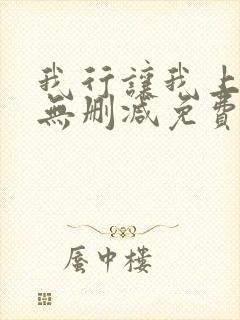 我行讓我上
無刪減免費
蜃中樓